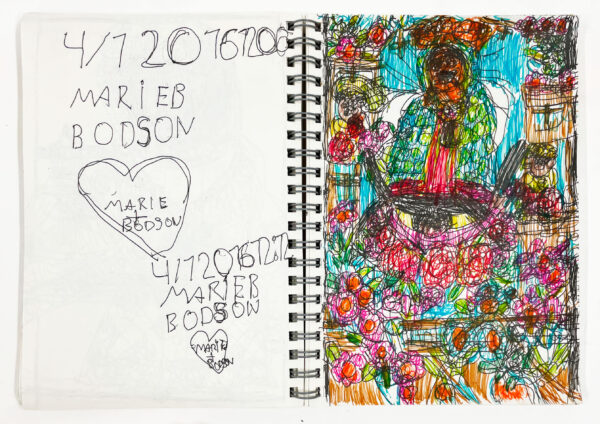 4/1 20161206
MARIEB
BODSON
MARIE
BODSON
MARIEB
BODSON
MARIE
BODSON